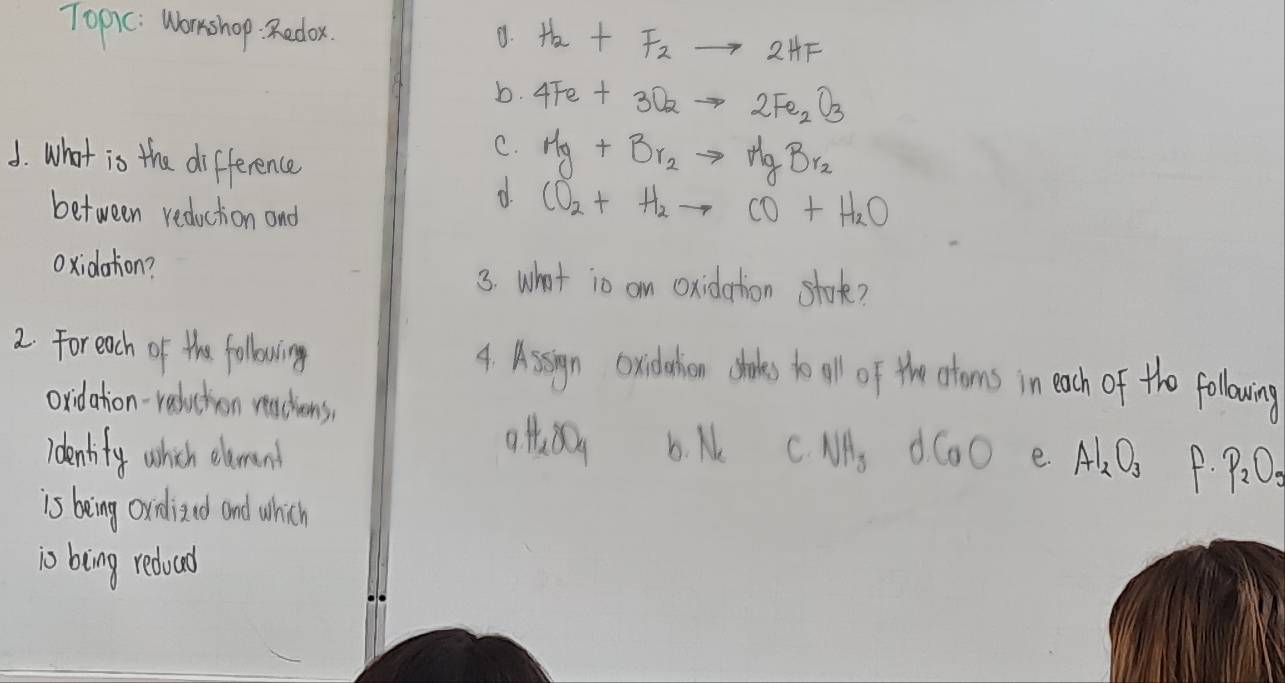 Topic: Workshop: Redox.
1. What is the difference
between reduction and
oxidation?
2. For each of the following
oxidation-reduction reactions,
identify which element
is being oxidized and which
is being reduced
a. H₂ + F₂ → 2HF
b. 4Fe + 3O₂ → 2Fe₂O₃
c. Mg + Br₂ → MgBr₂
d. CO₂ + H₂ → CO + H₂O
3. What is an oxidation state?
4. Assign oxidation states to all of the atoms in each of the following
a. H₂SO₄ b. N₂ c. NH₃ d. CaO e. Al₂O₃ f. P₂O₅